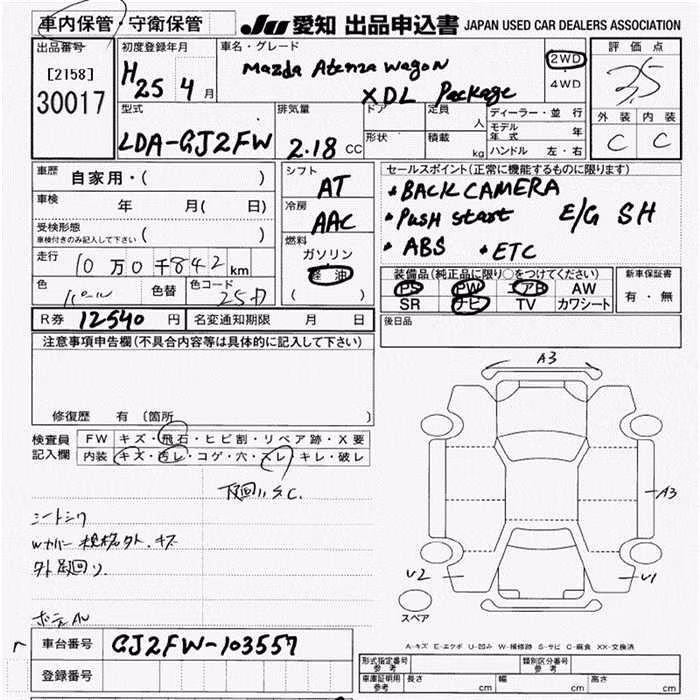 車内保管・守衛保管 JU 愛知 出品申込書 JAPAN USED CAR DEALERS ASSOCIATION
出品番号 初度登録年月 車名・グレード 評価点
[2158] H25 4月 Mazda Atenza Wagon 2WD 3.5
30017 XDL Package 4WD
型式 排気量 ドア 定員 人 ディーラー・並行 外装 内装
LDA-GJ2FW 2.18 CC 形状 積載 kg モデル年式 年 C C
ハンドル 左・右
車歴 自家用・( ) シフト AT セールスポイント(正常に機能するものに限ります)
車検 年 月( 日) 冷房 AAC •BACK CAMERA
受検形態 ( ) •Push start E/G SH
車検付きのみ記入して下さい 燃料 •ABS •ETC
走行 10万0千842km ガソリン
軽油 装備品(純正品に限り○をつけてください) 新車保証書
色 色替 色コード ( ) PS PW エアB AW 有・無
SR ナビ TV カワシート
R券 12540円 名変通知期限 月 日 後日品
注意事項申告欄(不具合内容等は具体的に記入して下さい)
修復歴 有 (箇所 )
A3
検査員 FW キズ・飛石・ヒビ割・リペア跡・X要
記入欄 内装 キズ・汚レ・コゲ・穴・スレ・キレ・破レ
下回りS.C.
A3
外装回り
U2 U1
スペア
A-キズ E-エクボ U-凹み W-補修跡 S-サビ C-腐食 XX-交換済
車台番号 GJ2FW-103557
登録番号
形式指定番号 参考 類別区分番号 参考
車庫証明用 参考 長さ cm 幅 cm 高さ cm